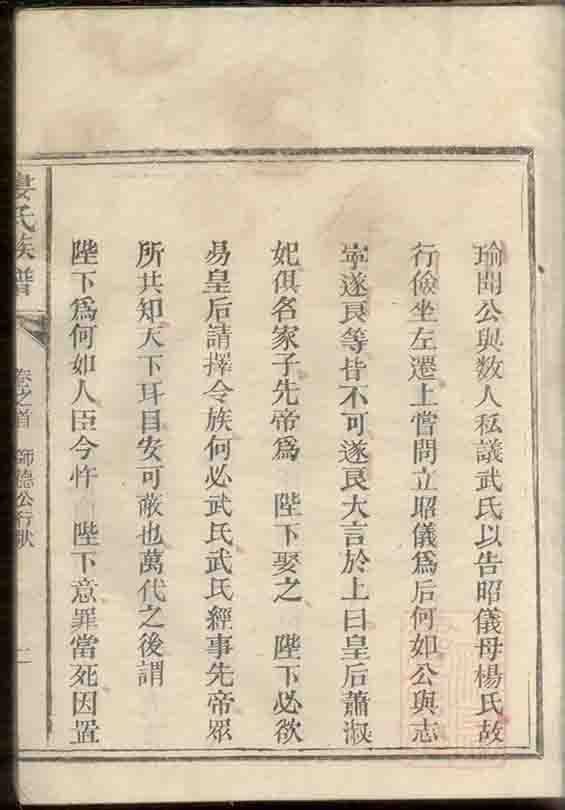 瑜聞公與数人私議武氏以告昭儀母楊氏故
行儉坐左遷上嘗問立昭儀爲后何如公與志
寕遂良等皆不可遂良大言於上曰皇后蕭淑
妃俱名家子先帝爲 陛下娶之 陛下必欲
易皇后請擇令族何必武氏武氏經事先帝眾
所共知天下耳目安可蔽也萬代之後謂
陛下爲何如人臣今忤 陛下意罪當死因置
婁氏族譜
卷之首 師德公行狀